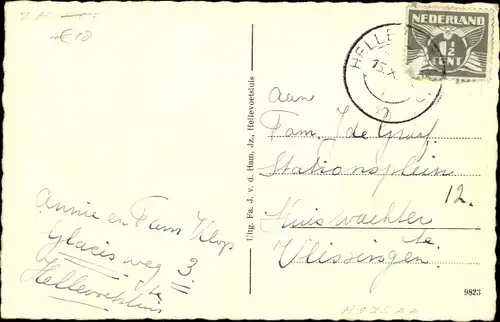 €18
NEDERLAND
1½
CENT
HELLE
15.X
aan
Fam. J de Graaf.
Stationsplein
12.
Huiswachter
te
Vlissingen.
Annie en Fam Klop
Glacisweg 3
te
Hellevoetsluis
Uitg. Fa. J. v. d. Ham, Jz., Hellevoetsluis
9823